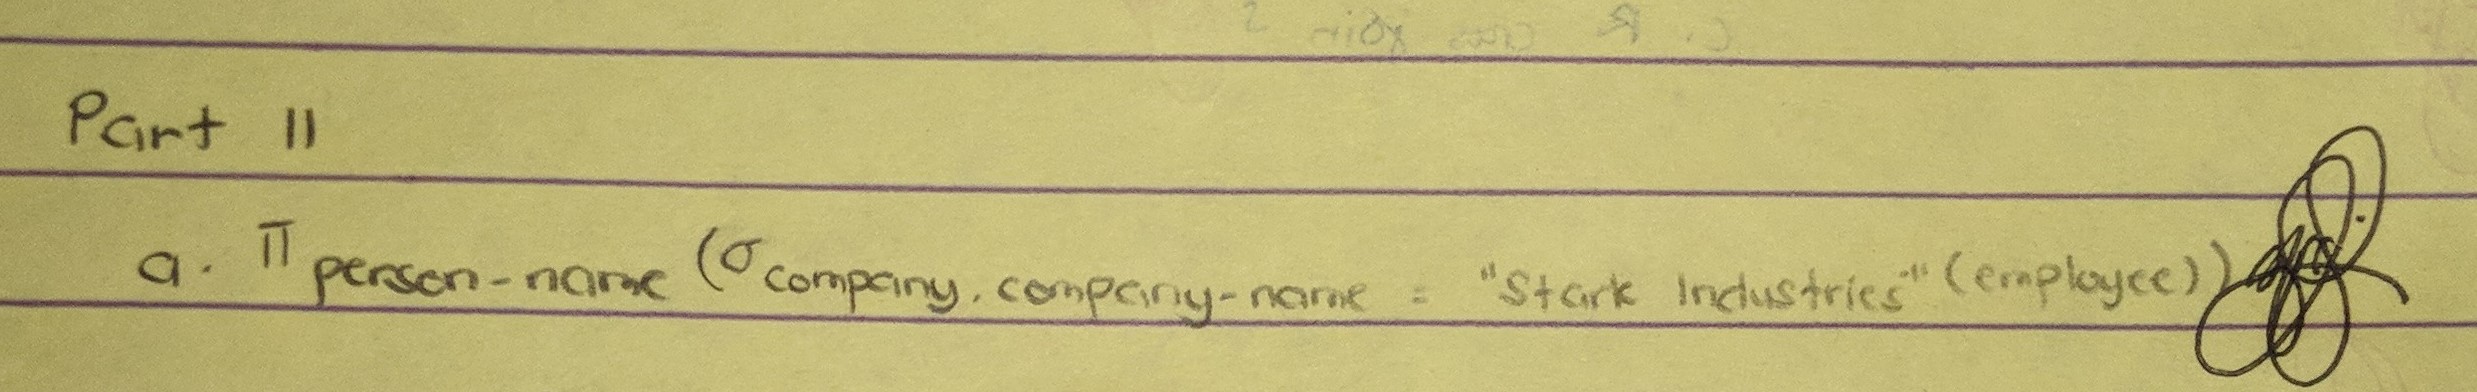 Part II
a. π person-name (σ company.company-name = "Stark Industries" (employee))